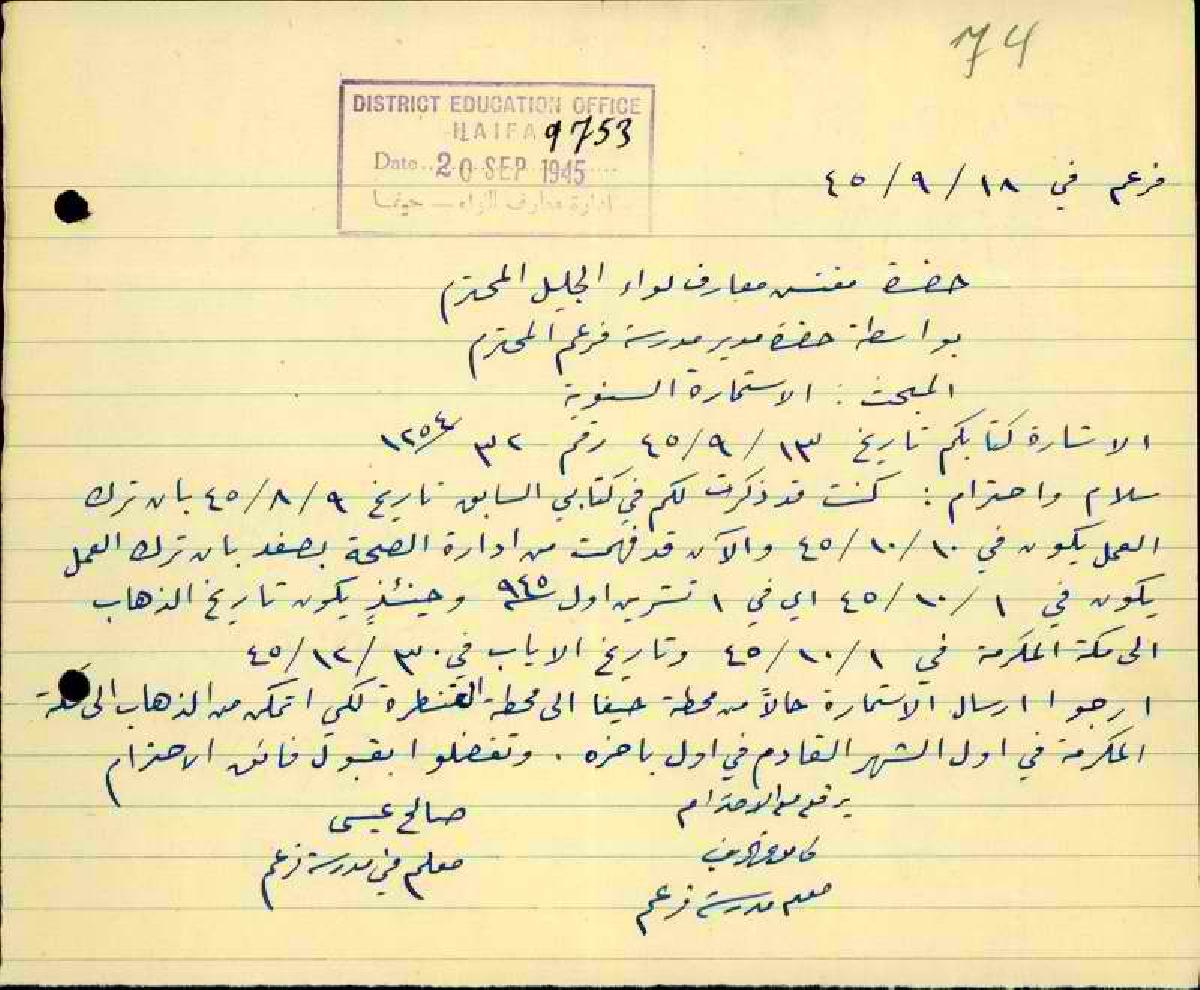 74
DISTRICT EDUCATION OFFICE
HAIFA
9753
Date 20 SEP 1945
ادارة معارف اللواء – حيفا
فرعم في ١٨/٩/٤٥
حضرة مفتش معارف لواء الجليل المحترم
بواسطة حضرة مدير مدرسة فرعم المحترم
المبحث : الاستمارة السنوية
الاشارة كتابكم تاريخ ١٣/٩/٤٥ رقم ٣٢/١٢٥٤
سلام واحترام : كنت قد ذكرت لكم في كتابي السابق تاريخ ٩/٨/٤٥ بان ترك
العمل يكون في ١٠/١٠/٤٥ والآن قد فهمت من ادارة الصحة بصفد بان ترك العمل
يكون في ١/١٠/٤٥ اي في ١ تشرين اول ٩٤٥ وحينئذٍ يكون تاريخ الذهاب
الى مكة المكرمة في ١/١٠/٤٥ وتاريخ الاياب في ٣٠/١٢/٤٥
ارجوا ارسال الاستمارة حالاً من محطة حيفا الى محطة القنطرة لكي اتمكن من الذهاب الى مكة
المكرمة في اول الشهر القادم في اول باخره . وتفضلوا بقبول فائق الاحترام
يرفع مع الاحترام
صالح عيسى
معلم في مدرسة فرعم
مدرسة فرعم